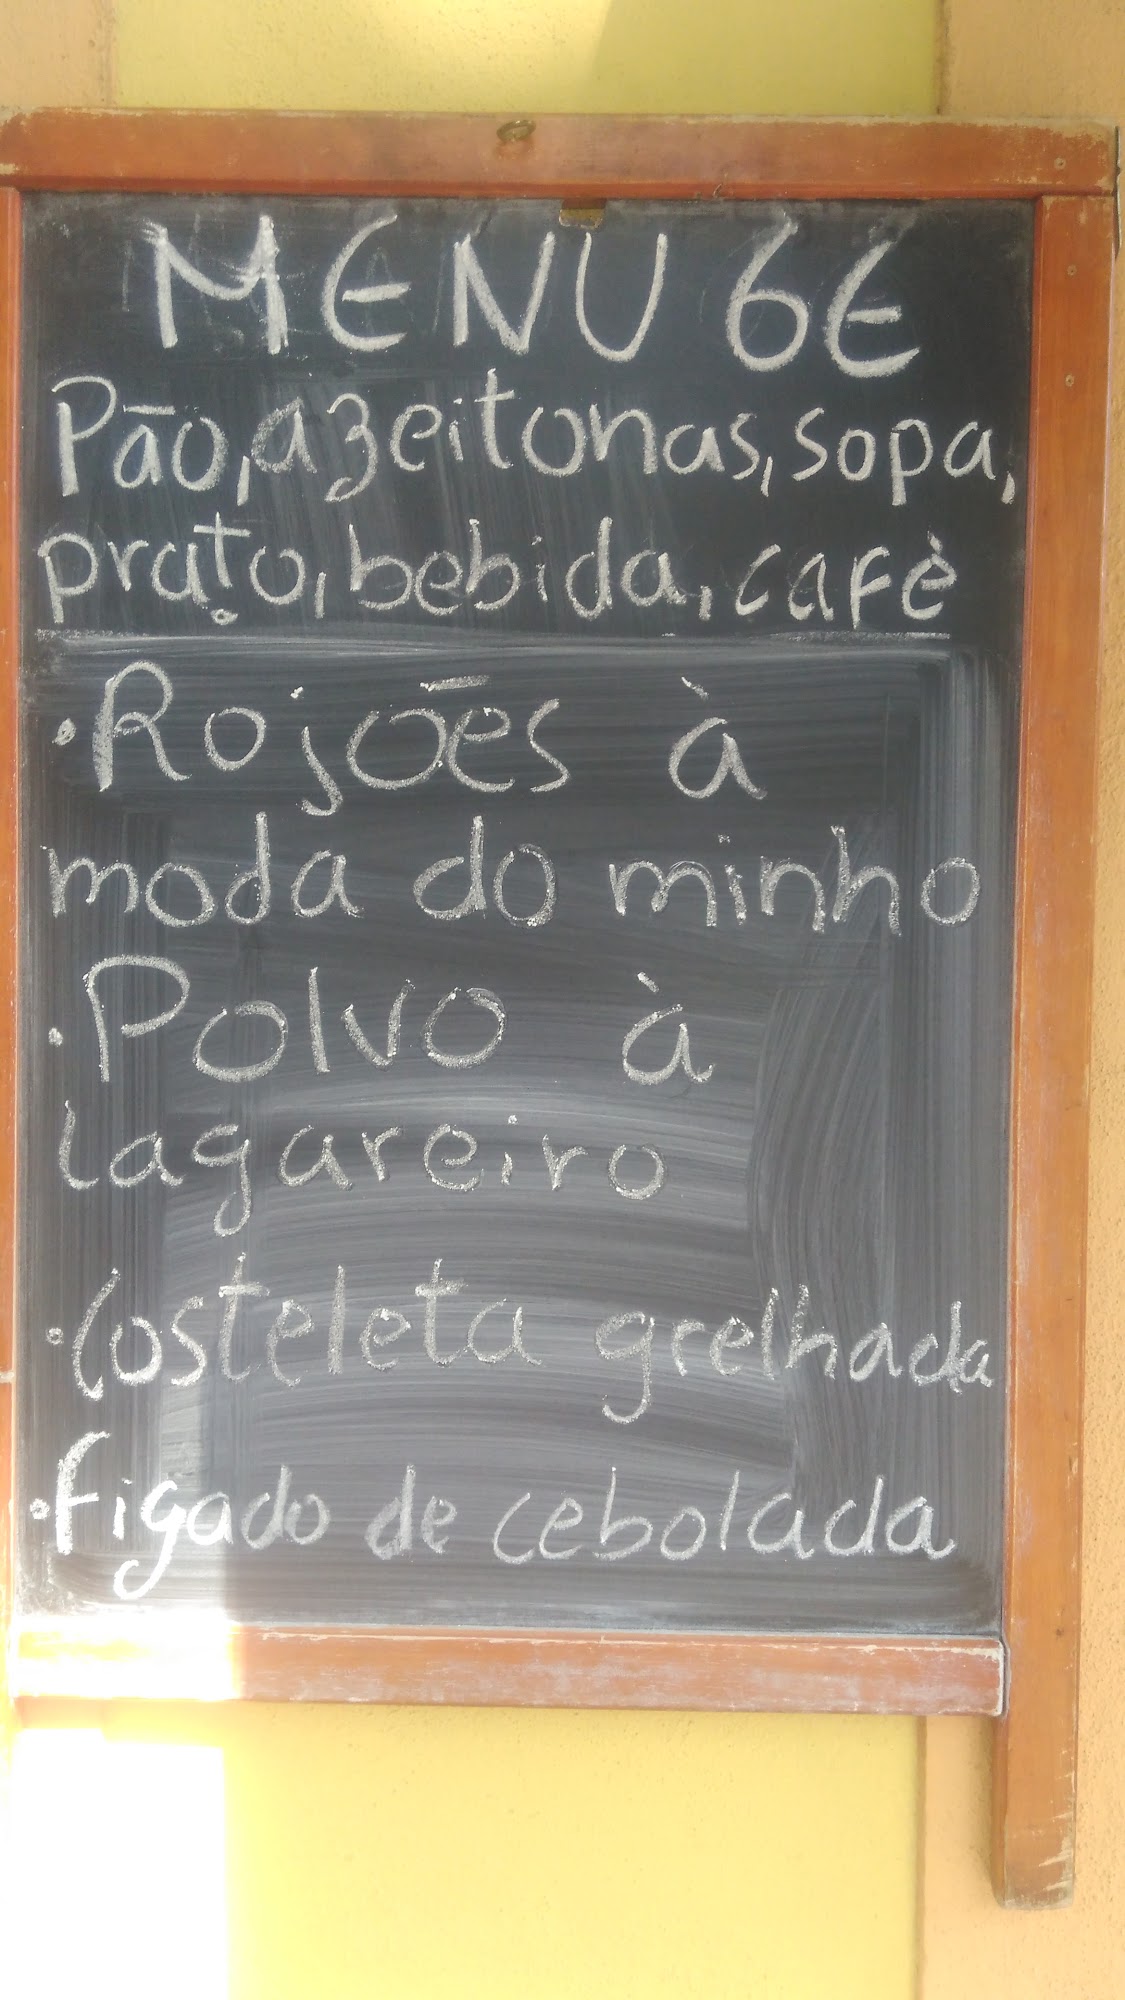 MENU 6€
Pão, azeitonas, sopa,
prato, bebida, cafè
• Rojões à
moda do minho
• Polvo à
lagareiro
• Costeleta grelhada
• Figado de cebolada